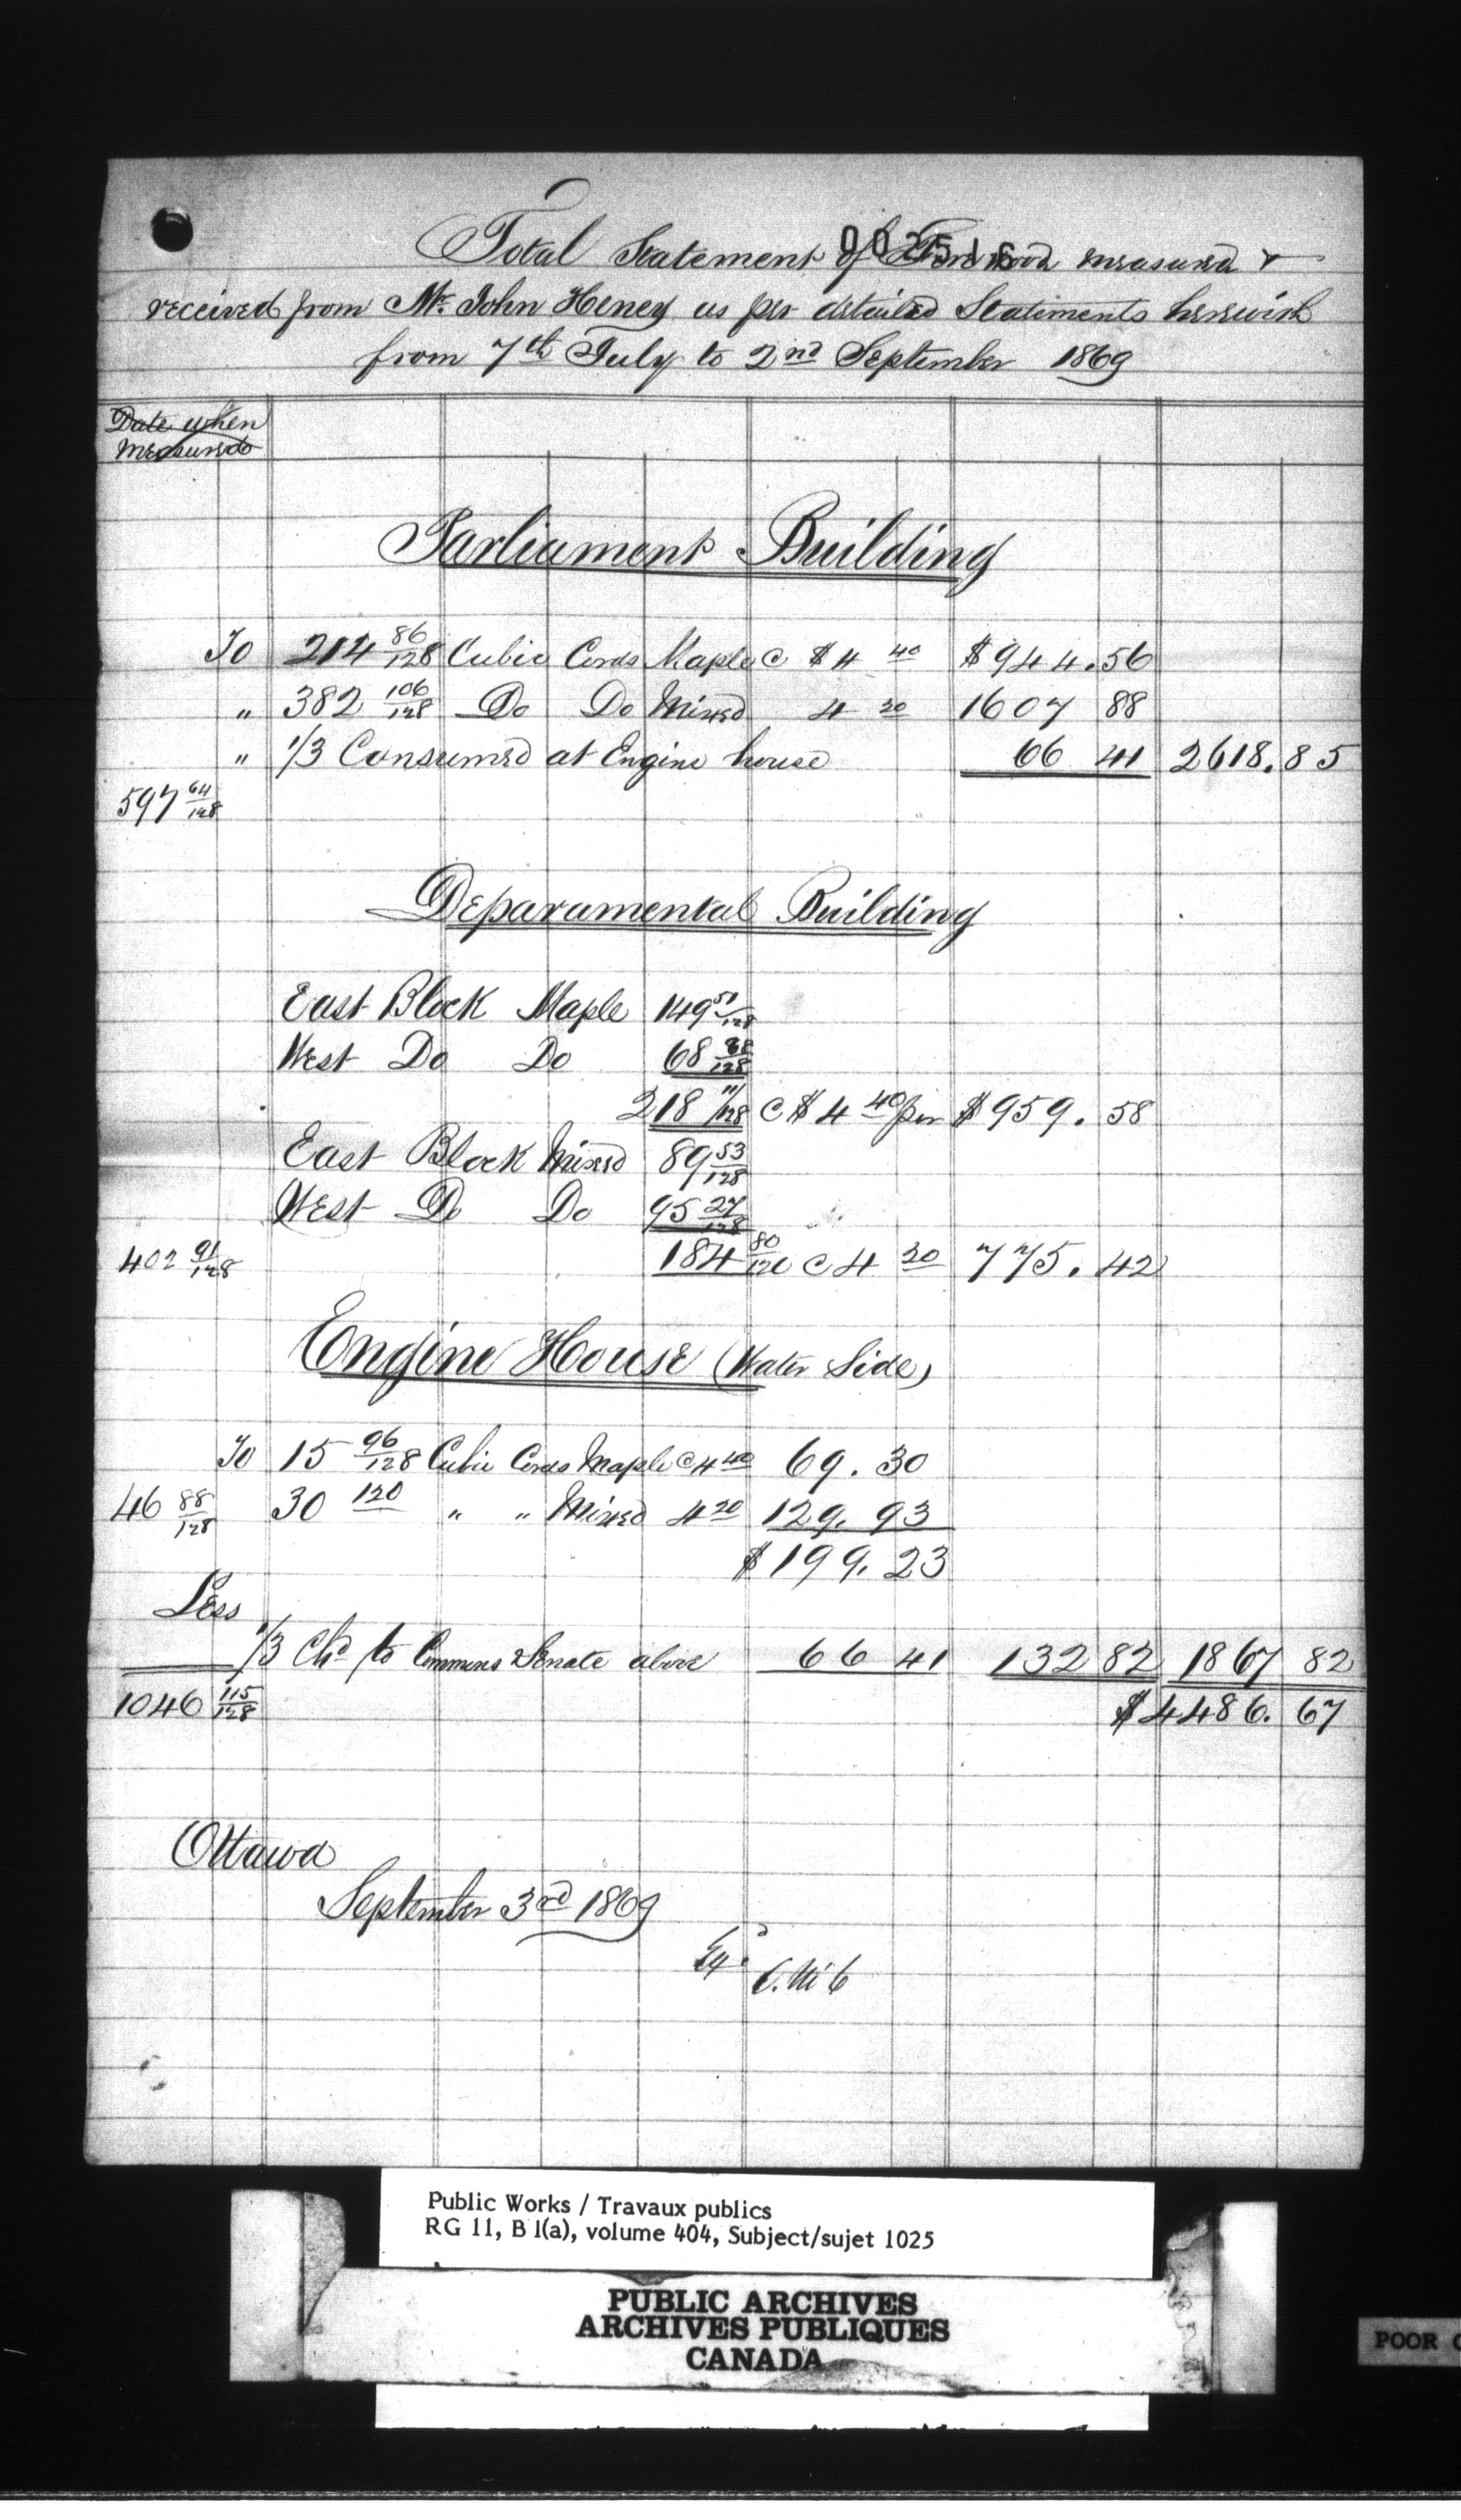 002516
Total Statement of Firewood measured &
received from Mr. John Heney as per detailed Statements herewith
from 7th July to 2nd September 1869
Date when
Measured
Parliament Building
To 214 86/128 Cubic Cords Maple @ $4 40 $944.56
" 382 106/128 Do Do Mixed 4 20 1607 88
" 1/3 Consumed at Engine house 66 41 2618.85
597 64/128
Departmental Building
East Block Maple 149 51/128
West Do Do 68 88/128
218 11/128 @ $4 40 per $959.58
East Block Mixed 89 53/128
West Do Do 95 27/128
402 91/128 184 80/128 @ 4 20 775.42
Engine House (Water Side)
To 15 96/128 Cubic Cords Maple @ 4 40 69.30
46 88/128 30 120 " " Mixed 4 20 129.93
$199.23
Less
1/3 Chd to Commons & Senate above 66 41 132 82 1867 82
1046 115/128 $4486.67
Ottawa
September 3rd 1869
Public Works / Travaux publics
RG 11, B 1(a), volume 404, Subject/sujet 1025
PUBLIC ARCHIVES
ARCHIVES PUBLIQUES
CANADA
POOR